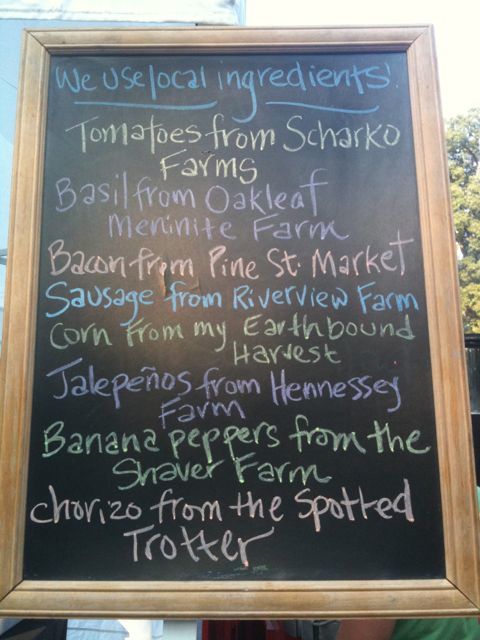 We use local ingredients!
Tomatoes from Scharko
Farms
Basil from Oakleaf
Meninite Farm
Bacon from Pine St. Market
Sausage from Riverview Farm
Corn from my Earthbound
Harvest
Jalepeños from Hennessey
Farm
Banana peppers from the
Shaver Farm
chorizo from the Spotted
Trotter